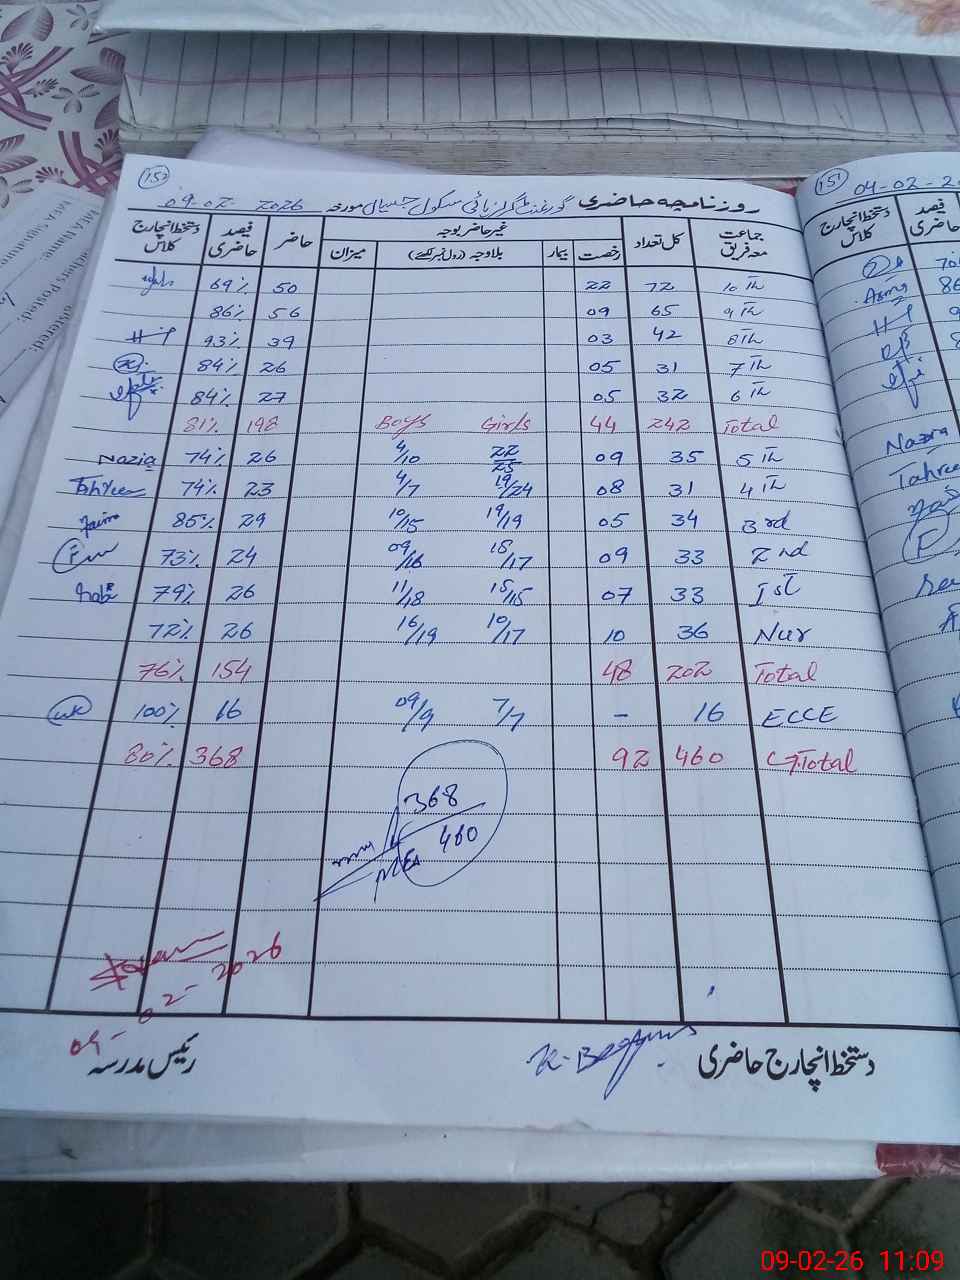 152
09-02-2026 روزنامچہ حاضری گورنمنٹ گرلز ہائی سکول مورخہ
جماعت معہ فریق کل تعداد غیر حاضر بوجہ حاضر فیصد حاضری دستخط انچارج کلاس
رخصت بیمار بلاوجہ (رول نمبر لکھئے) میزان
10th 72 22 50 69%
9th 65 09 56 86%
8th 42 03 39 93%
7th 31 05 26 84%
6th 32 05 27 84%
Total 242 44 Girls Boys 198 81%
5th 35 09 22/25 4/10 26 74% Nazia
4th 31 08 19/24 4/7 23 74%
3rd 34 05 19/19 10/15 29 85%
2nd 33 09 15/17 09/16 24 73%
Ist 33 07 15/15 11/18 26 79%
Nur 36 10 10/17 16/19 26 72%
Total 202 48 154 76%
ECCE 16 - 7/7 09/9 16 100%
G.Total 460 92 368 80%
368
460
MEA
09-02-2026
دستخط انچارج حاضری
رئیس مدرسہ
151
04-02-20
دستخط انچارج کلاس فیصد حاضری
Asma 86
Nazia
Tahree
F
MEA Signature
09-02-26 11:09